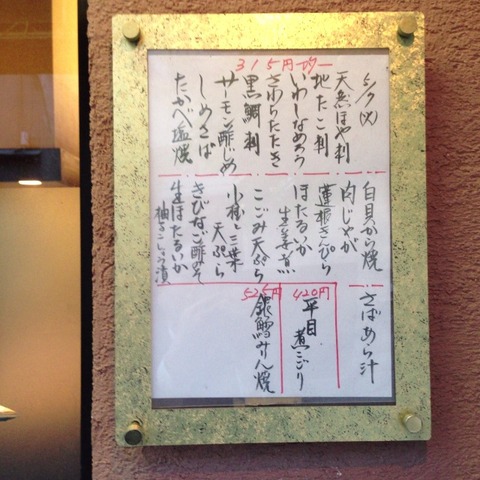 315円均一
5/7(火)
天然ほや刺
地たこ刺
いわしなめろう
さわらたたき
黒鯛刺
サーモン酢じめ
しめさば
たかべ塩焼
白貝から焼
肉じゃが
蓮根きんぴら
ほたるいか
生姜煮
こごみ天ぷら
小柱と三葉
天ぷら
きびなご酢みそ
生ほたるいか
柚子こしょう漬
さばあら汁
420円
平目
煮こごり
525円
銀鱈みりん焼